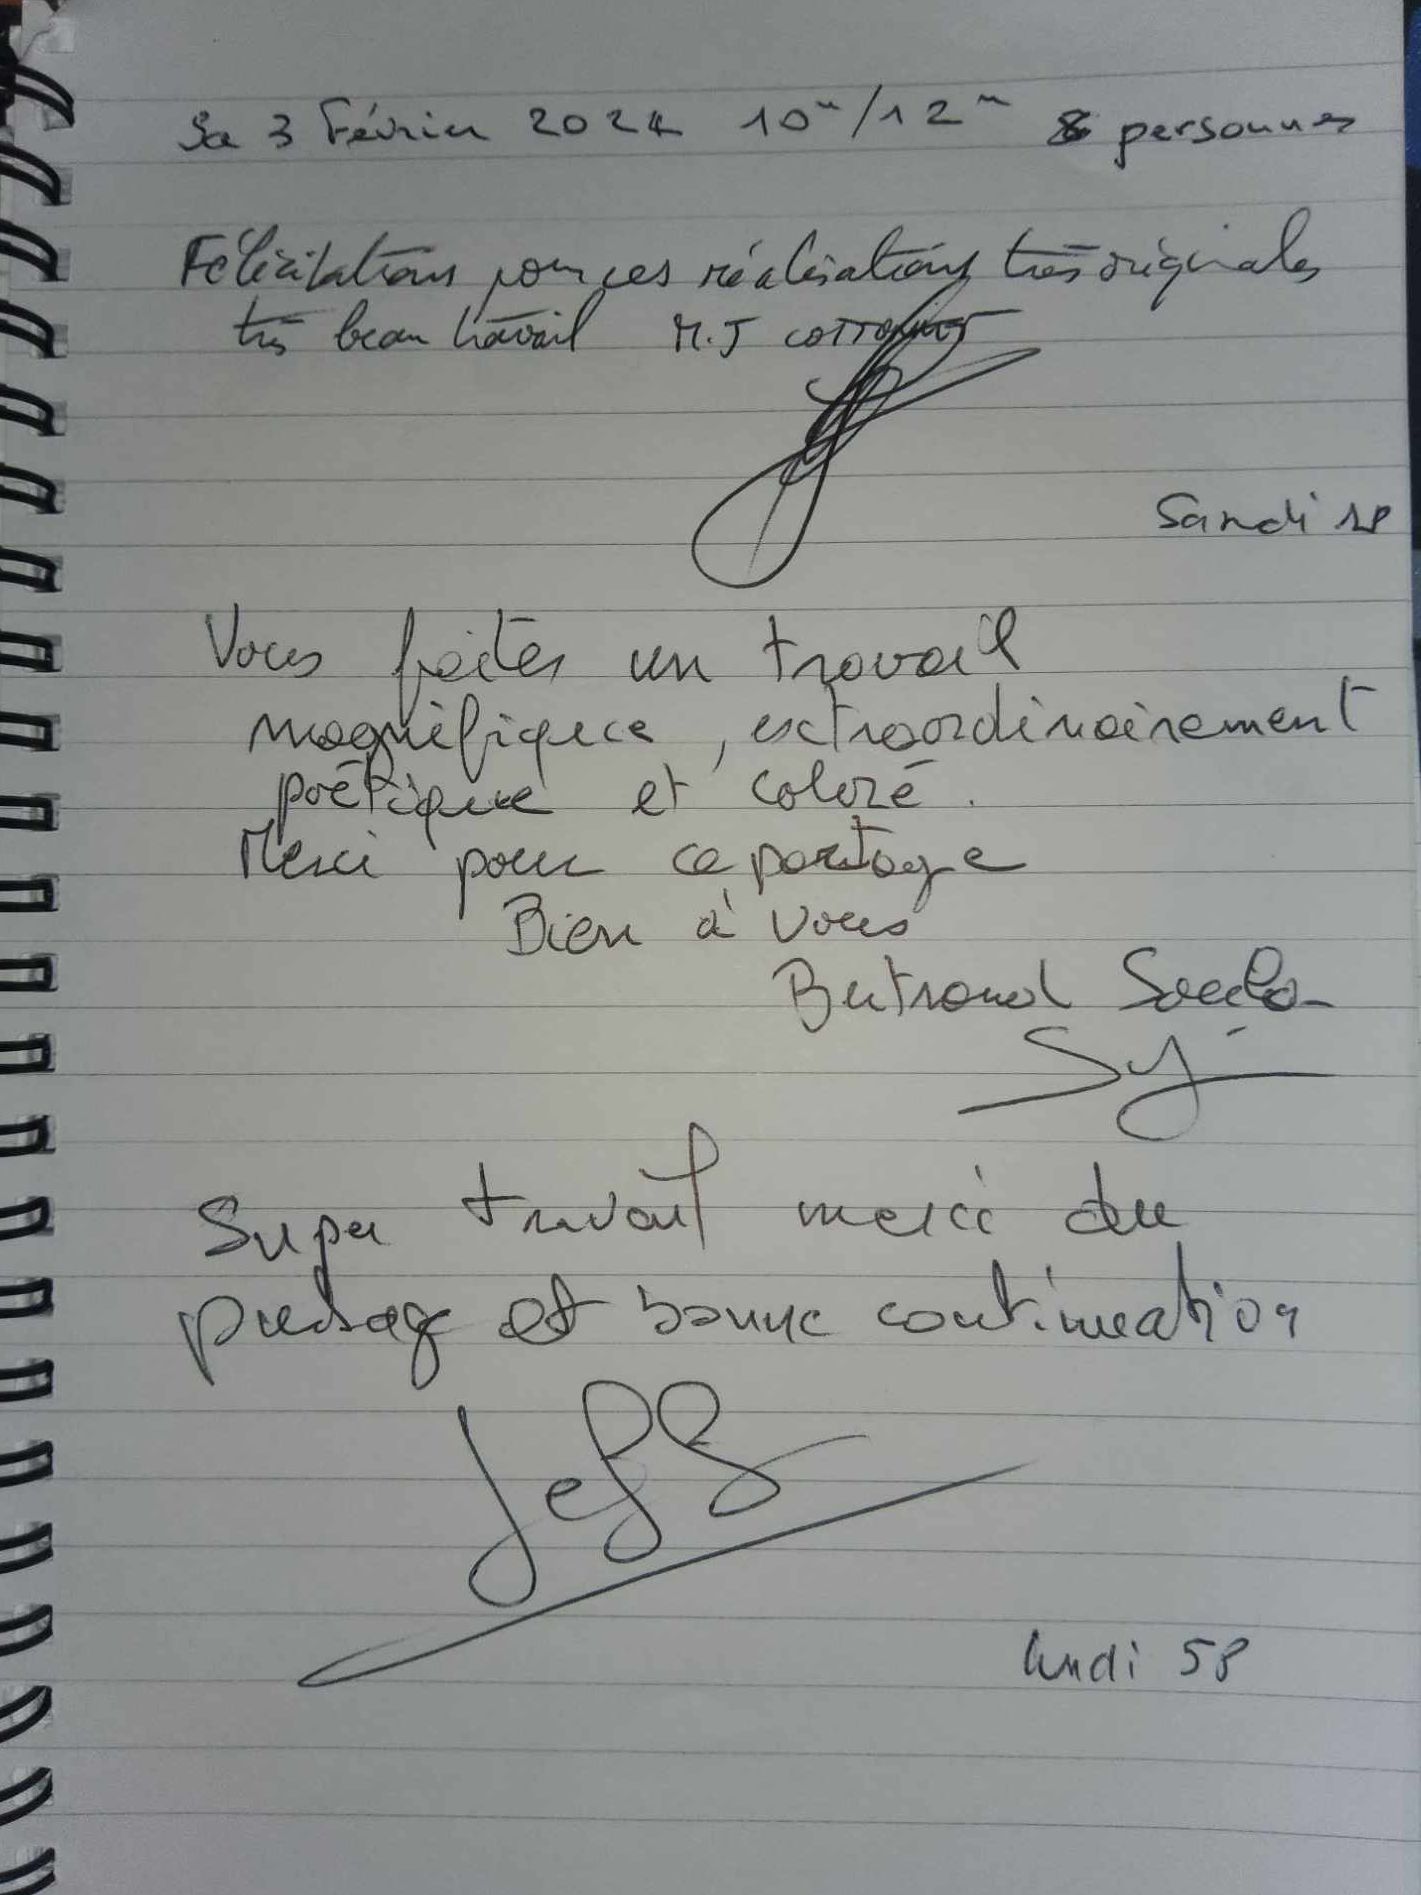 Sa 3 Février 2024 10h/12h 8 personnes
Félicitations pour ces réalisations très originales
très beau travail M.J
Samdi
Vous faites un travail
magnifique, extraordinairement
poétique et coloré.
Merci pour ce partage
Bien à vous
Bertrand
Super travail merci du
et bonne continuation
Jeff
lundi 5P